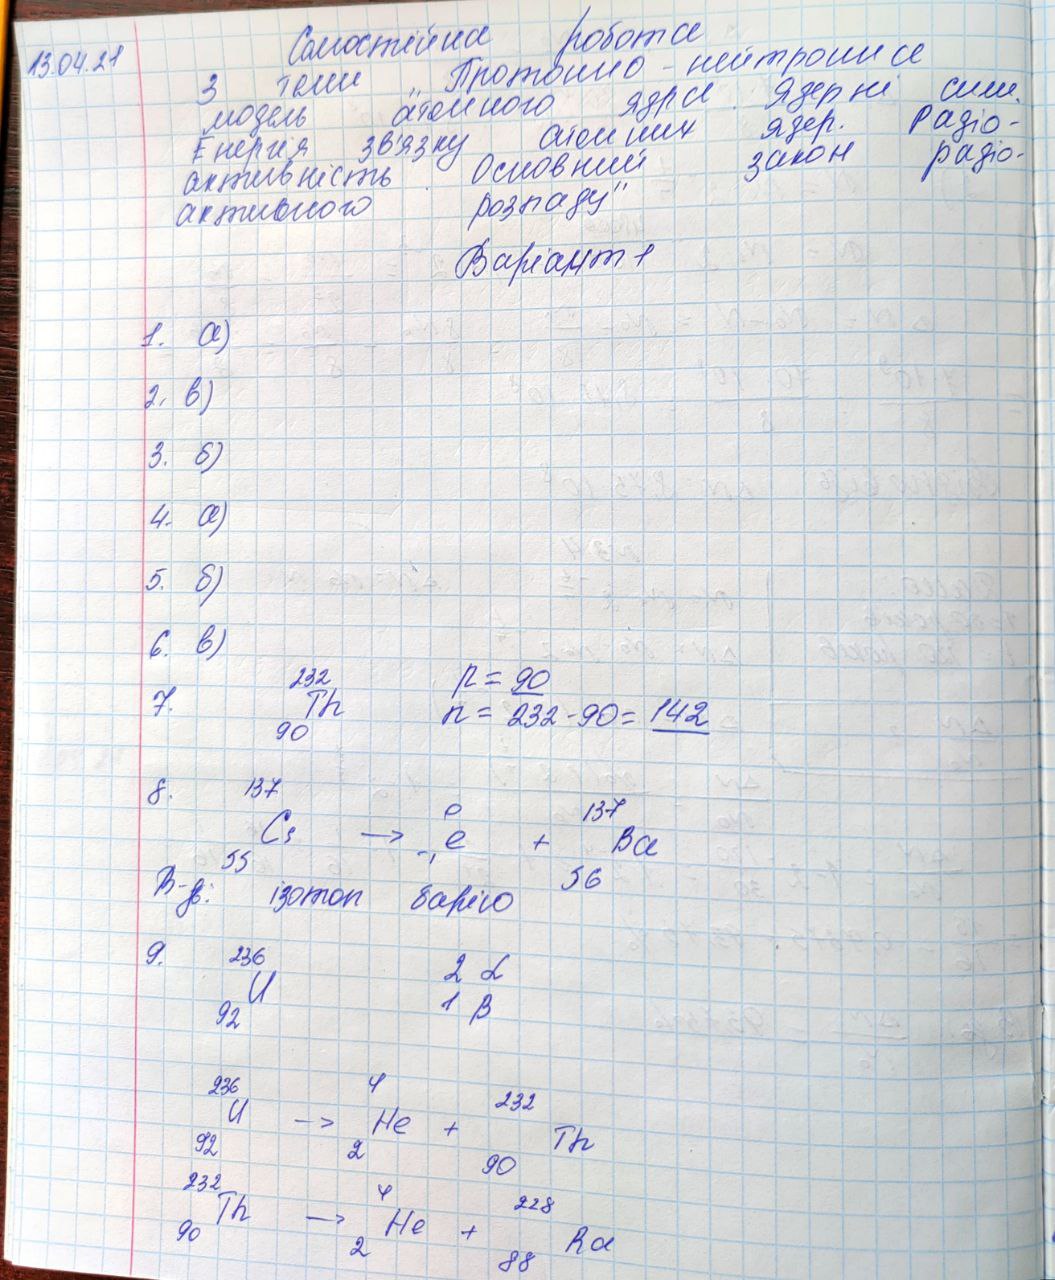 13.04.21
Самостійна робота
З теми „Протонно-нейтронна
модель атомного ядра. Ядерні сили.
Енергія зв'язку атомних ядер. Радіо-
активність. Основний закон радіо-
активного розпаду"
Варіант 1
1. а)
2. в)
3. б)
4. а)
5. б)
6. в)
7. ²³²₉₀Th p = 90
n = 232 - 90 = 142
8. ¹³⁷₅₅Cs → ⁰₋₁e + ¹³⁷₅₆Ba
В-дь: ізотоп барію
9. ²³⁶₉₂U 2 α
1 β
²³⁶₉₂U → ⁴₂He + ²³²₉₀Th
²³²₉₀Th → ⁴₂He + ²²⁸₈₈Ra